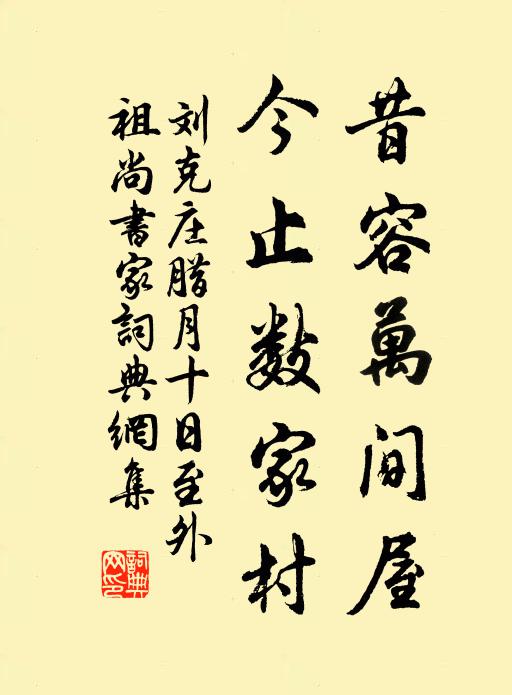 昔容萬間屋
今止数家村
刘克庄腊月十日至外
祖尚書家詞典網集
詞典
网印